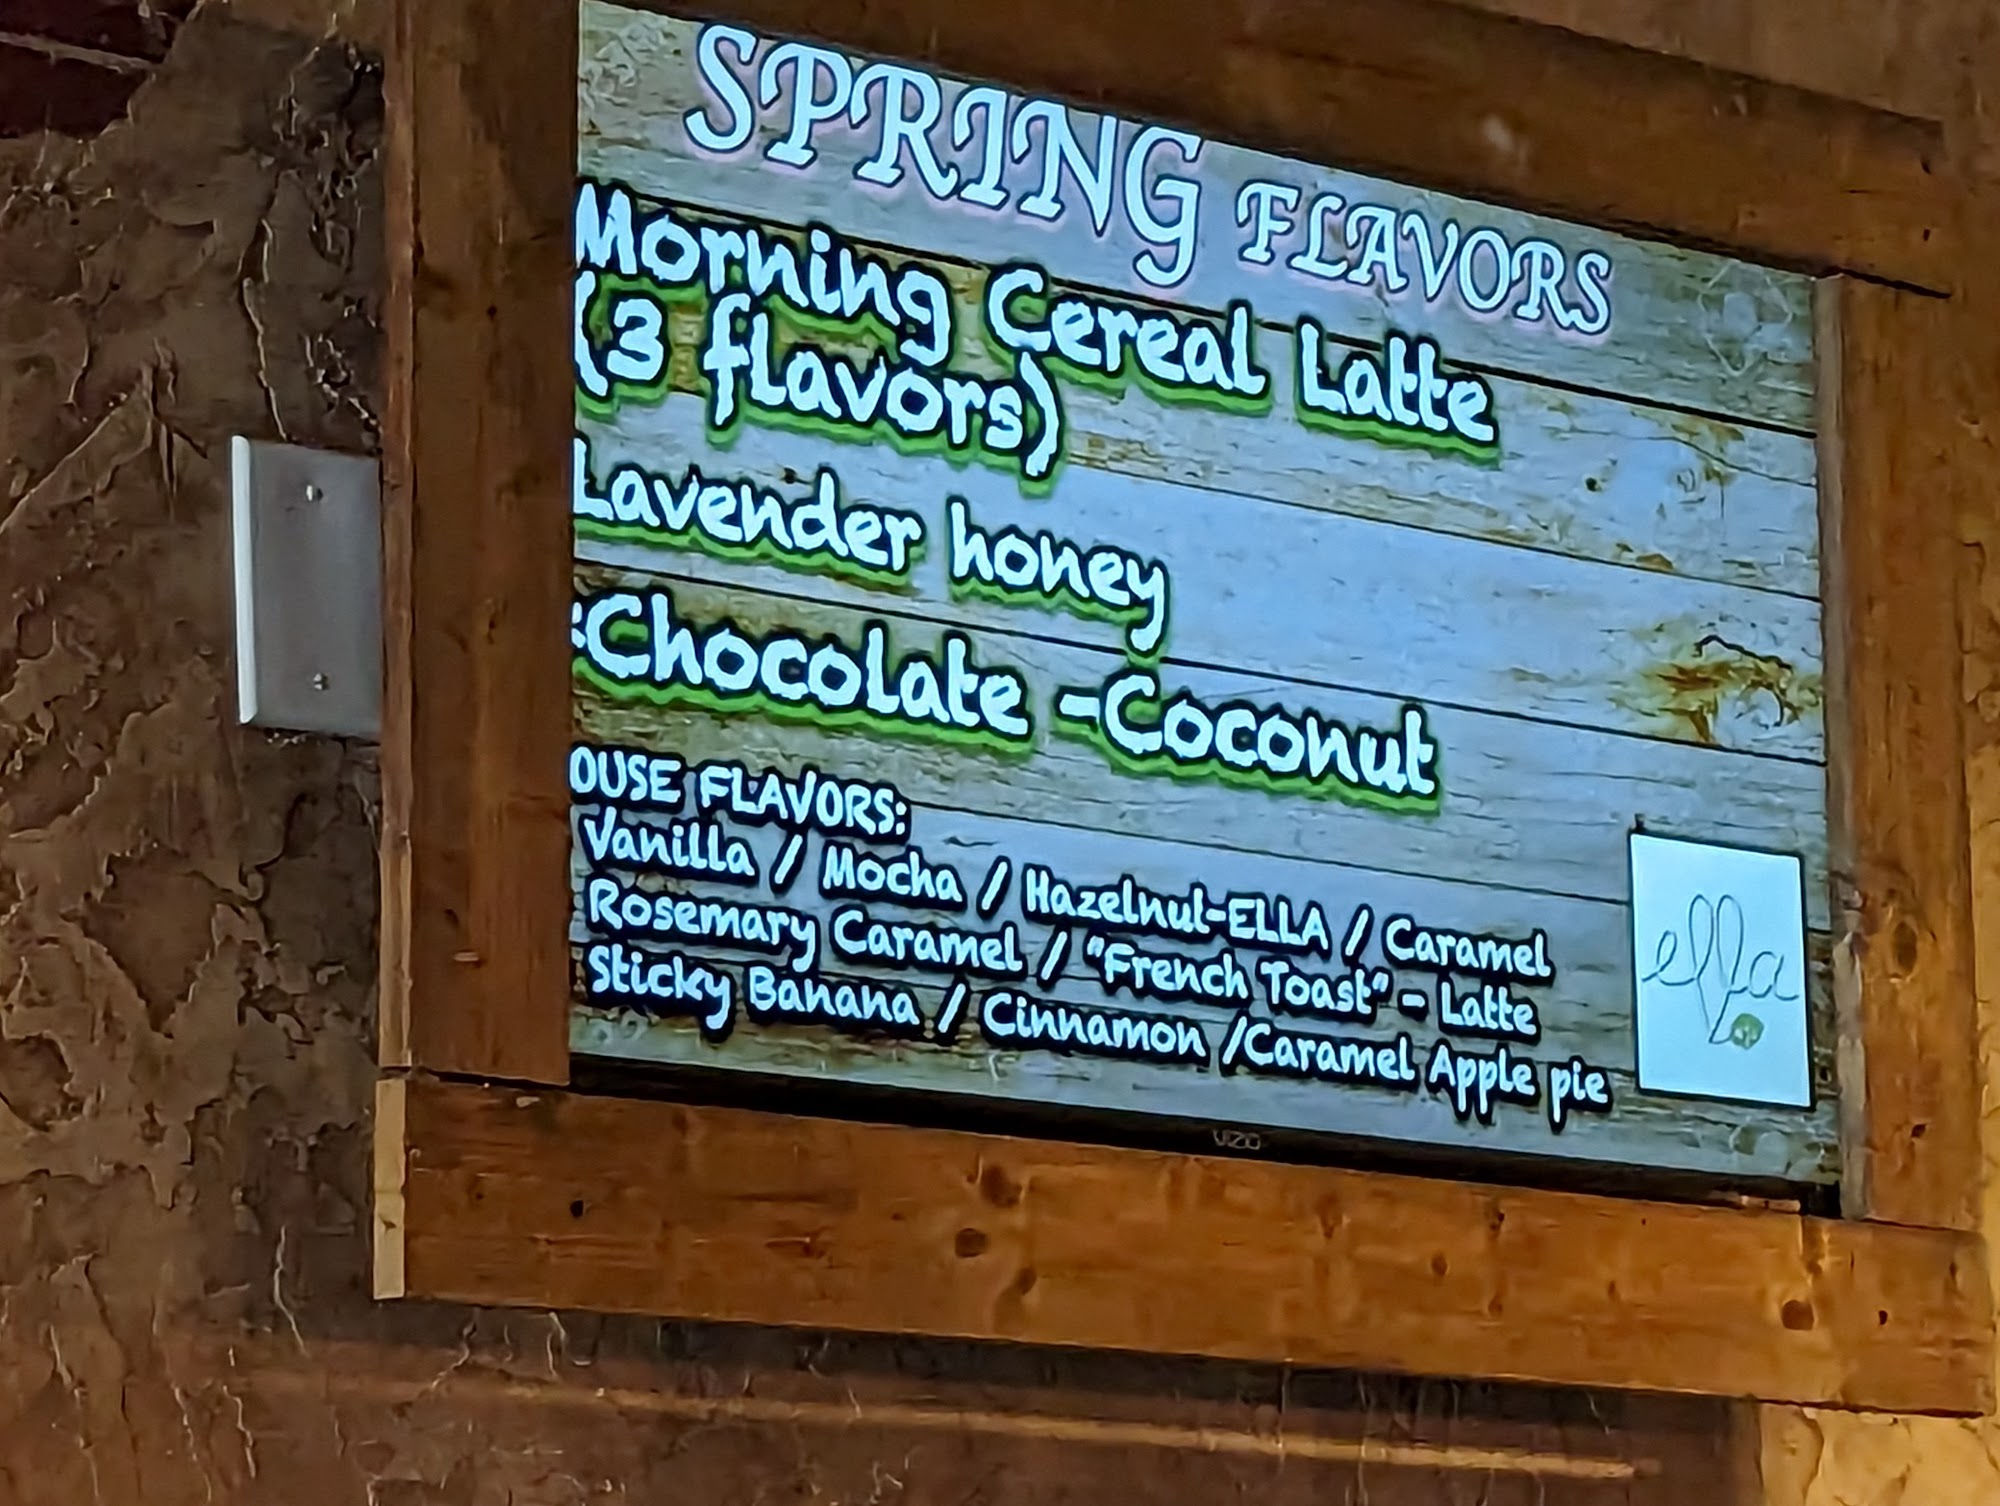 SPRING FLAVORS
Morning Cereal Latte
(3 flavors)
Lavender honey
:Chocolate -Coconut
OUSE FLAVORS:
Vanilla / Mocha / Hazelnut-ELLA / Caramel
Rosemary Caramel / "French Toast" - Latte
Sticky Banana / Cinnamon /Caramel Apple pie
ella
VIZIO